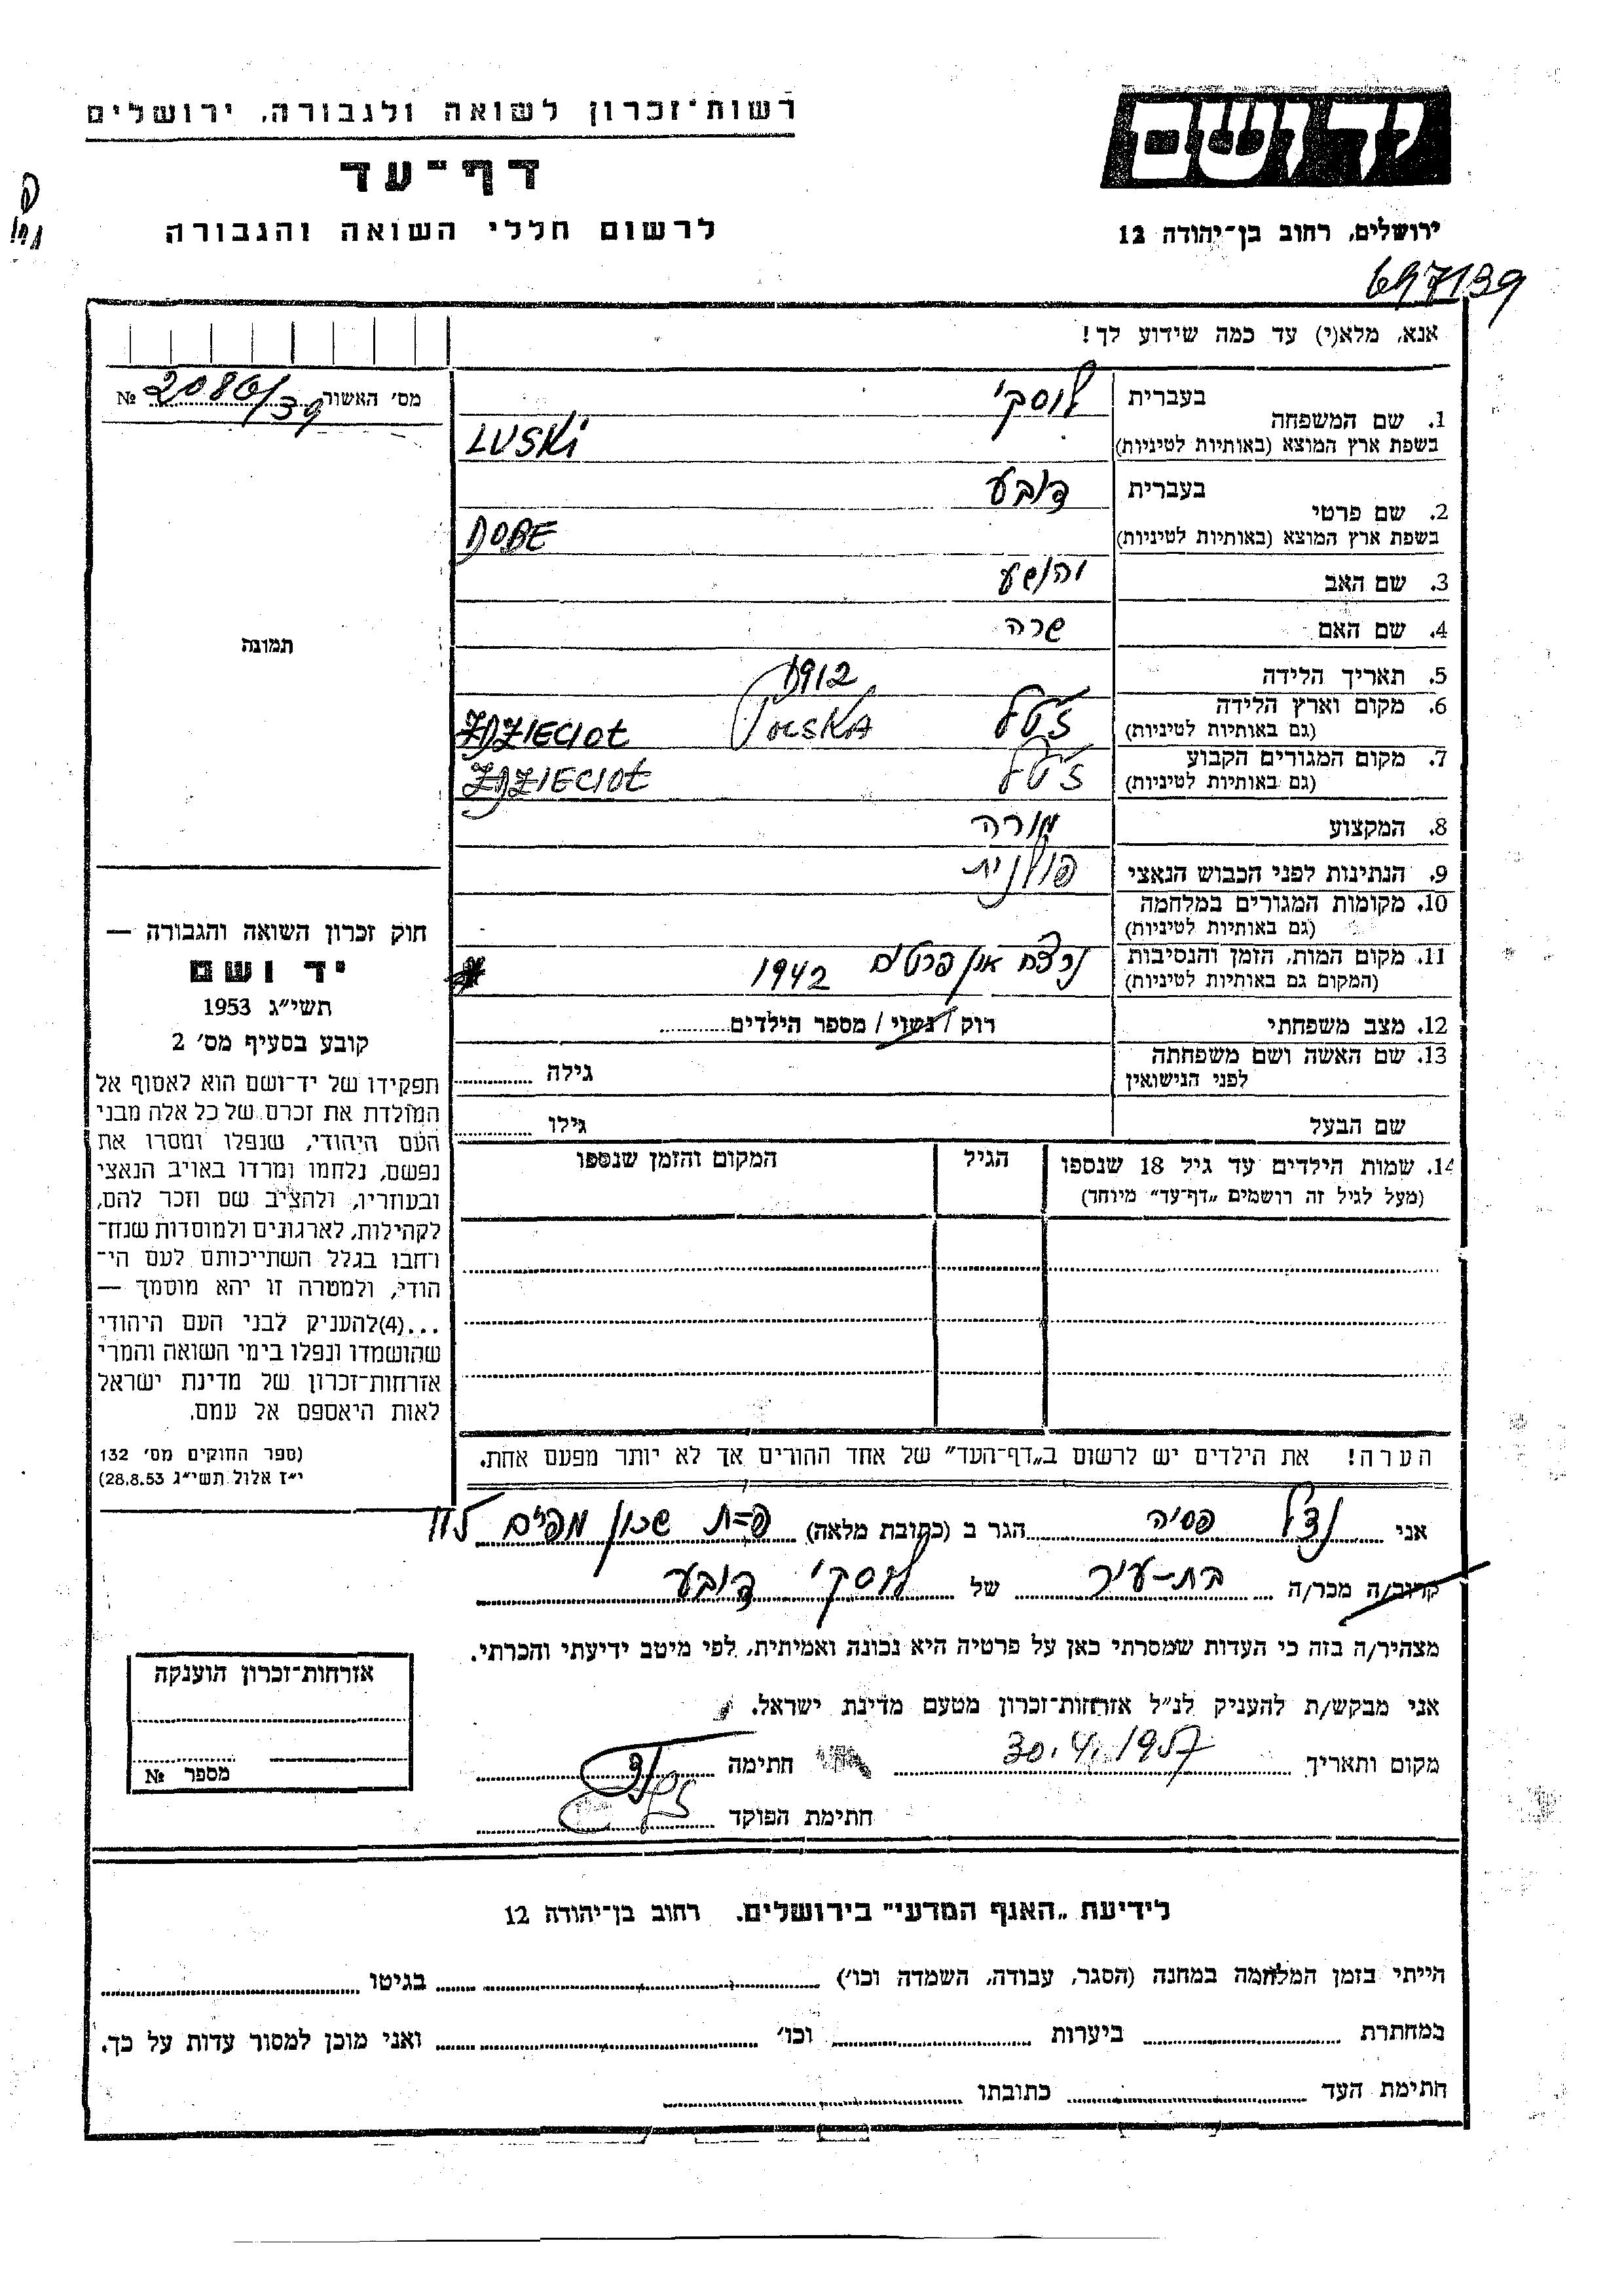 רשות־זכרון לשואה ולגבורה, ירושלים
דף־עד
לרשום חללי השואה והגבורה
יד ושם
ירושלים, רחוב בן־יהודה 12
697139
אנא, מלא(י) עד כמה שידוע לך!
מס׳ האשור 2086/39 №
1. שם המשפחה
בעברית לוסקי
בשפת ארץ המוצא (באותיות לטיניות) LUSKi
2. שם פרטי
בעברית דובע
בשפת ארץ המוצא (באותיות לטיניות) DOBE
3. שם האב יהושע
4. שם האם שרה
5. תאריך הלידה 1912
6. מקום וארץ הלידה
(גם באותיות לטיניות) ז'טל POLSKA ZDZIECIOŁ
7. מקום המגורים הקבוע
(גם באותיות לטיניות) ז'טל ZDZIECIOŁ
8. המקצוע מורה
9. הנתינות לפני הכבוש הנאצי פולנית
10. מקומות המגורים במלחמה
(גם באותיות לטיניות)
11. מקום המות, הזמן והנסיבות
(המקום גם באותיות לטיניות) אין פרטים 1942
12. מצב משפחתי רוק / נשוי / מספר הילדים
13. שם האשה ושם משפחתה
לפני הנישואין גילה
שם הבעל גילו
14. שמות הילדים עד גיל 18 שנספו
(מעל לגיל זה רושמים „דף־עד" מיוחד)
הגיל
המקום והזמן שנספו
הערה! את הילדים יש לרשום ב„דף־העד" של אחד ההורים אך לא יותר מפעם אחת.
תמונה
חוק זכרון השואה והגבורה —
יד ושם
תשי״ג 1953
קובע בסעיף מס׳ 2
תפקידו של יד־ושם הוא לאסוף אל
המולדת את זכרם של כל אלה מבני
העם היהודי, שנפלו ומסרו את
נפשם, נלחמו ומרדו באויב הנאצי
ובעוזריו, ולהציב שם וזכר להם,
לקהילות, לארגונים ולמוסדות שנח־
רחבו בגלל השתייכותם לעם הי־
הודי, ולמטרה זו יהא מוסמך —
...(4)להעניק לבני העם היהודי
שהושמדו ונפלו בימי השואה והמרי
אזרחות־זכרון של מדינת ישראל
לאות היאספם אל עמם.
(ספר החוקים מס׳ 132
י״ז אלול תשי״ג 28.8.53)
אני נדל פסיה הגר ב (כתובת מלאה) פ=ת שכון
קרוב/ה מכר/ה בת-עיר של לוסקי דובע
מצהיר/ה בזה כי העדות שמסרתי כאן על פרטיה היא נכונה ואמיתית, לפי מיטב ידיעתי והכרתי.
אני מבקש/ת להעניק לנ״ל אזרחות־זכרון מטעם מדינת ישראל.
מקום ותאריך 30.4.1957 חתימה
חתימת הפוקד
אזרחות־זכרון הוענקה
מספר №
לידיעת „האגף המדעי" בירושלים, רחוב בן־יהודה 12
הייתי בזמן המלחמה במחנה (הסגר, עבודה, השמדה וכו׳) בגיטו
במחתרת ביערות וכו׳ ואני מוכן למסור עדות על כך.
חתימת העד כתובתו